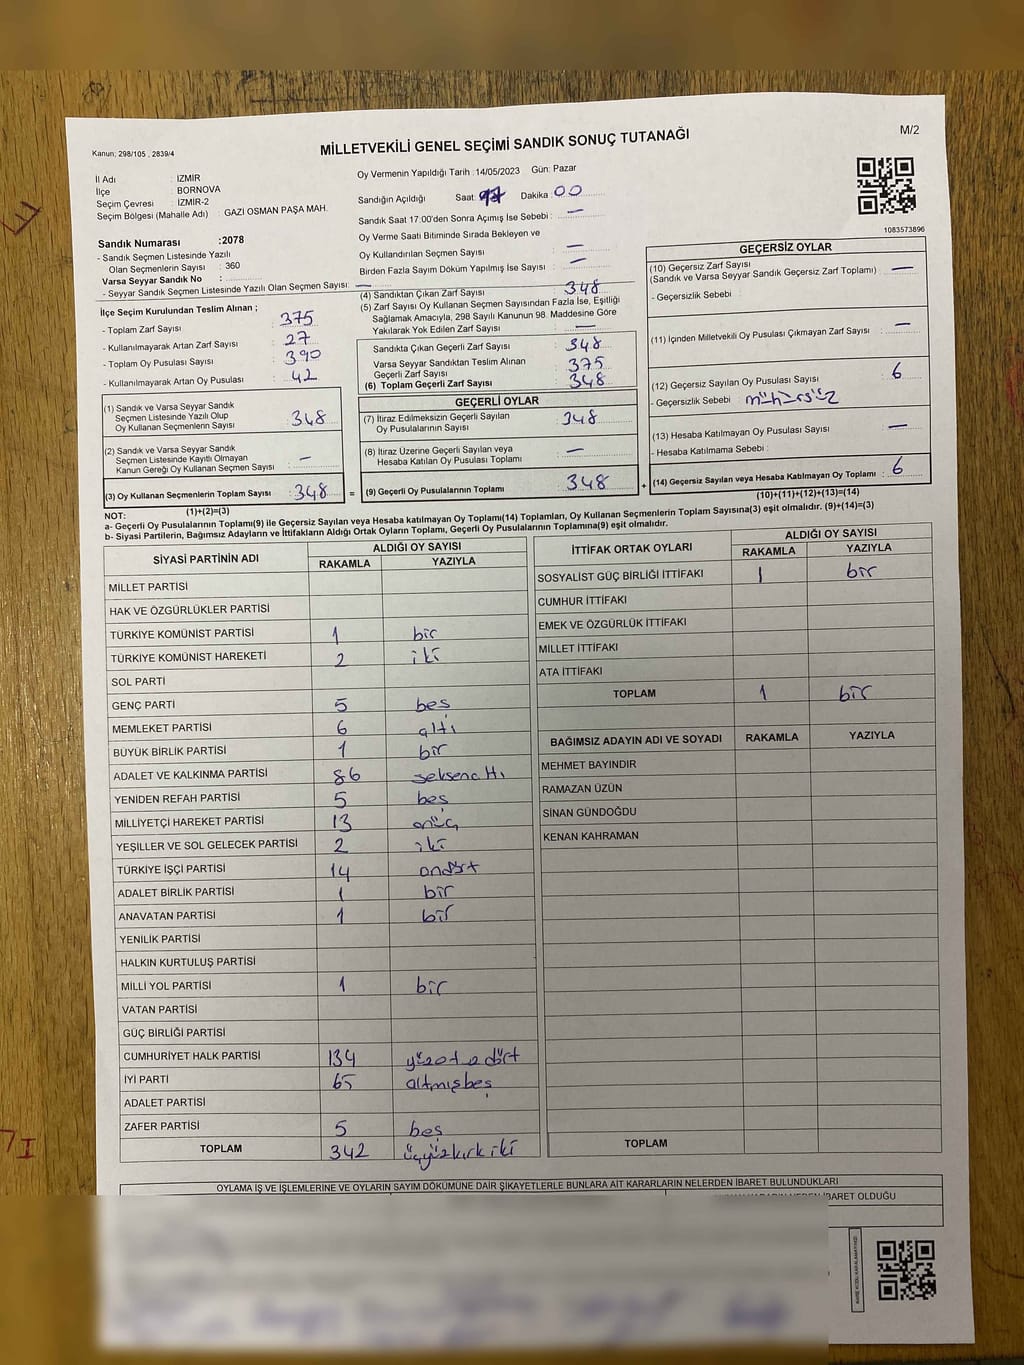 MİLLETVEKİLİ GENEL SEÇİMİ SANDIK SONUÇ TUTANAĞI
M/2
Kanun: 298/105 , 2839/4
İl Adı : İZMİR
İlçe : BORNOVA
Seçim Çevresi : İZMİR-2
Seçim Bölgesi (Mahalle Adı) : GAZİ OSMAN PAŞA MAH.
Sandık Numarası :2078
- Sandık Seçmen Listesinde Yazılı
Olan Seçmenlerin Sayısı : 360
Varsa Seyyar Sandık No :
- Seyyar Sandık Seçmen Listesinde Yazılı Olan Seçmen Sayısı: —
Oy Vermenin Yapıldığı Tarih :14/05/2023 Gün: Pazar
Sandığın Açıldığı Saat: 17 Dakika : 00
Sandık Saat 17:00'den Sonra Açımış İse Sebebi : —
Oy Verme Saati Bitiminde Sırada Bekleyen ve
Oy Kullandırılan Seçmen Sayısı —
Birden Fazla Sayım Döküm Yapılmış İse Sayısı : —
1083573896
İlçe Seçim Kurulundan Teslim Alınan ;
- Toplam Zarf Sayısı : 375
- Kullanılmayarak Artan Zarf Sayısı : 27
- Toplam Oy Pusulası Sayısı : 390
- Kullanılmayarak Artan Oy Pusulası : 42
(1) Sandık ve Varsa Seyyar Sandık
Seçmen Listesinde Yazılı Olup
Oy Kullanan Seçmenlerin Sayısı : 348
(2) Sandık ve Varsa Seyyar Sandık
Seçmen Listesinde Kayıtlı Olmayan
Kanun Gereği Oy Kullanan Seçmen Sayısı : —
(3) Oy Kullanan Seçmenlerin Toplam Sayısı : 348 =
(1)+(2)=(3)
(4) Sandıktan Çıkan Zarf Sayısı : 348
(5) Zarf Sayısı Oy Kullanan Seçmen Sayısından Fazla İse, Eşitliği
Sağlamak Amacıyla, 298 Sayılı Kanunun 98. Maddesine Göre
Yakılarak Yok Edilen Zarf Sayısı : —
Sandıkta Çıkan Geçerli Zarf Sayısı : 348
Varsa Seyyar Sandıktan Teslim Alınan
Geçerli Zarf Sayısı : 375
(6) Toplam Geçerli Zarf Sayısı : 348
GEÇERLİ OYLAR
(7) İtiraz Edilmeksizin Geçerli Sayılan
Oy Pusulalarının Sayısı : 348
(8) İtiraz Üzerine Geçerli Sayılan veya
Hesaba Katılan Oy Pusulası Toplamı : —
(9) Geçerli Oy Pusulalarının Toplamı : 348 +
GEÇERSİZ OYLAR
(10) Geçersiz Zarf Sayısı
(Sandık ve Varsa Seyyar Sandık Geçersiz Zarf Toplamı) : —
- Geçersizlik Sebebi :
(11) İçinden Milletvekili Oy Pusulası Çıkmayan Zarf Sayısı : —
(12) Geçersiz Sayılan Oy Pusulası Sayısı : 6
- Geçersizlik Sebebi : mühürsüz
(13) Hesaba Katılmayan Oy Pusulası Sayısı : —
- Hesaba Katılmama Sebebi :
(14) Geçersiz Sayılan veya Hesaba Katılmayan Oy Toplamı : 6
(10)+(11)+(12)+(13)=(14)
NOT:
a- Geçerli Oy Pusulalarının Toplamı(9) ile Geçersiz Sayılan veya Hesaba katılmayan Oy Toplamı(14) Toplamları, Oy Kullanan Seçmenlerin Toplam Sayısına(3) eşit olmalıdır. (9)+(14)=(3)
b- Siyasi Partilerin, Bağımsız Adayların ve İttifakların Aldığı Ortak Oyların Toplamı, Geçerli Oy Pusulalarının Toplamına(9) eşit olmalıdır.
SİYASİ PARTİNİN ADI ALDIĞI OY SAYISI
RAKAMLA YAZIYLA
MİLLET PARTİSİ
HAK VE ÖZGÜRLÜKLER PARTİSİ
TÜRKİYE KOMÜNİST PARTİSİ 1 bir
TÜRKİYE KOMÜNİST HAREKETİ 2 iki
SOL PARTİ
GENÇ PARTİ 5 beş
MEMLEKET PARTİSİ 6 altı
BÜYÜK BİRLİK PARTİSİ 1 bir
ADALET VE KALKINMA PARTİSİ 86 seksenaltı
YENİDEN REFAH PARTİSİ 5 beş
MİLLİYETÇİ HAREKET PARTİSİ 13 onüç
YEŞİLLER VE SOL GELECEK PARTİSİ 2 iki
TÜRKİYE İŞÇİ PARTİSİ 14 ondört
ADALET BİRLİK PARTİSİ 1 bir
ANAVATAN PARTİSİ 1 bir
YENİLİK PARTİSİ
HALKIN KURTULUŞ PARTİSİ
MİLLİ YOL PARTİSİ 1 bir
VATAN PARTİSİ
GÜÇ BİRLİĞİ PARTİSİ
CUMHURİYET HALK PARTİSİ 134 yüzotuzdört
İYİ PARTİ 65 altmışbeş
ADALET PARTİSİ
ZAFER PARTİSİ 5 beş
TOPLAM 342 üçyüzkırkiki
İTTİFAK ORTAK OYLARI ALDIĞI OY SAYISI
RAKAMLA YAZIYLA
SOSYALİST GÜÇ BİRLİĞİ İTTİFAKI 1 bir
CUMHUR İTTİFAKI
EMEK VE ÖZGÜRLÜK İTTİFAKI
MİLLET İTTİFAKI
ATA İTTİFAKI
TOPLAM 1 bir
BAĞIMSIZ ADAYIN ADI VE SOYADI RAKAMLA YAZIYLA
MEHMET BAYINDIR
RAMAZAN ÜZÜN
SİNAN GÜNDOĞDU
KENAN KAHRAMAN
TOPLAM
OYLAMA İŞ VE İŞLEMLERİNE VE OYLARIN SAYIM DÖKÜMÜNE DAİR ŞİKAYETLERLE BUNLARA AİT KARARLARIN NELERDEN İBARET BULUNDUKLARI
İBARET OLDUĞU